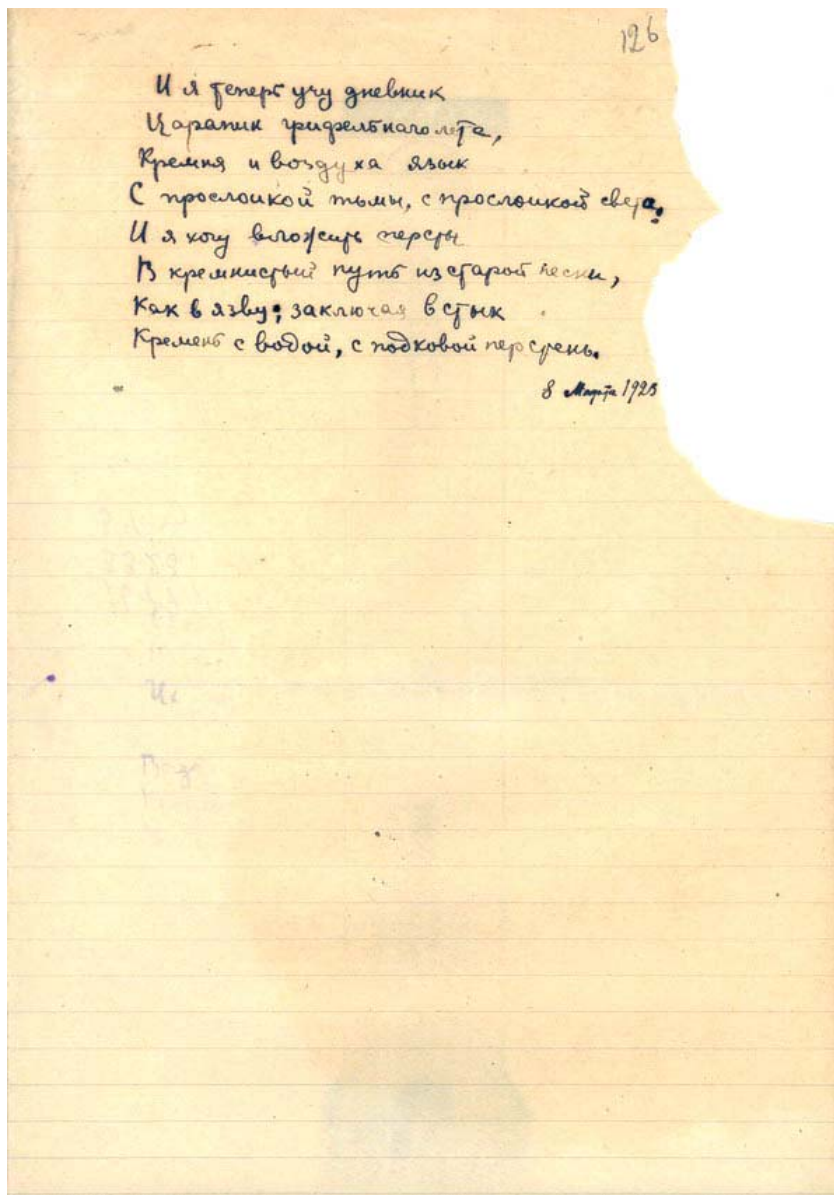 126
И я теперь учу дневник
Царапин грифельнаго лета,
Кремня и воздуха язык
С прослойкой тьмы, с прослойкой света;
И я хочу вложить персты
В кремнистый путь из старой песни,
Как в язву; заключая в стык
Кремень с водой, с подковой перстень.
8 Марта 1923